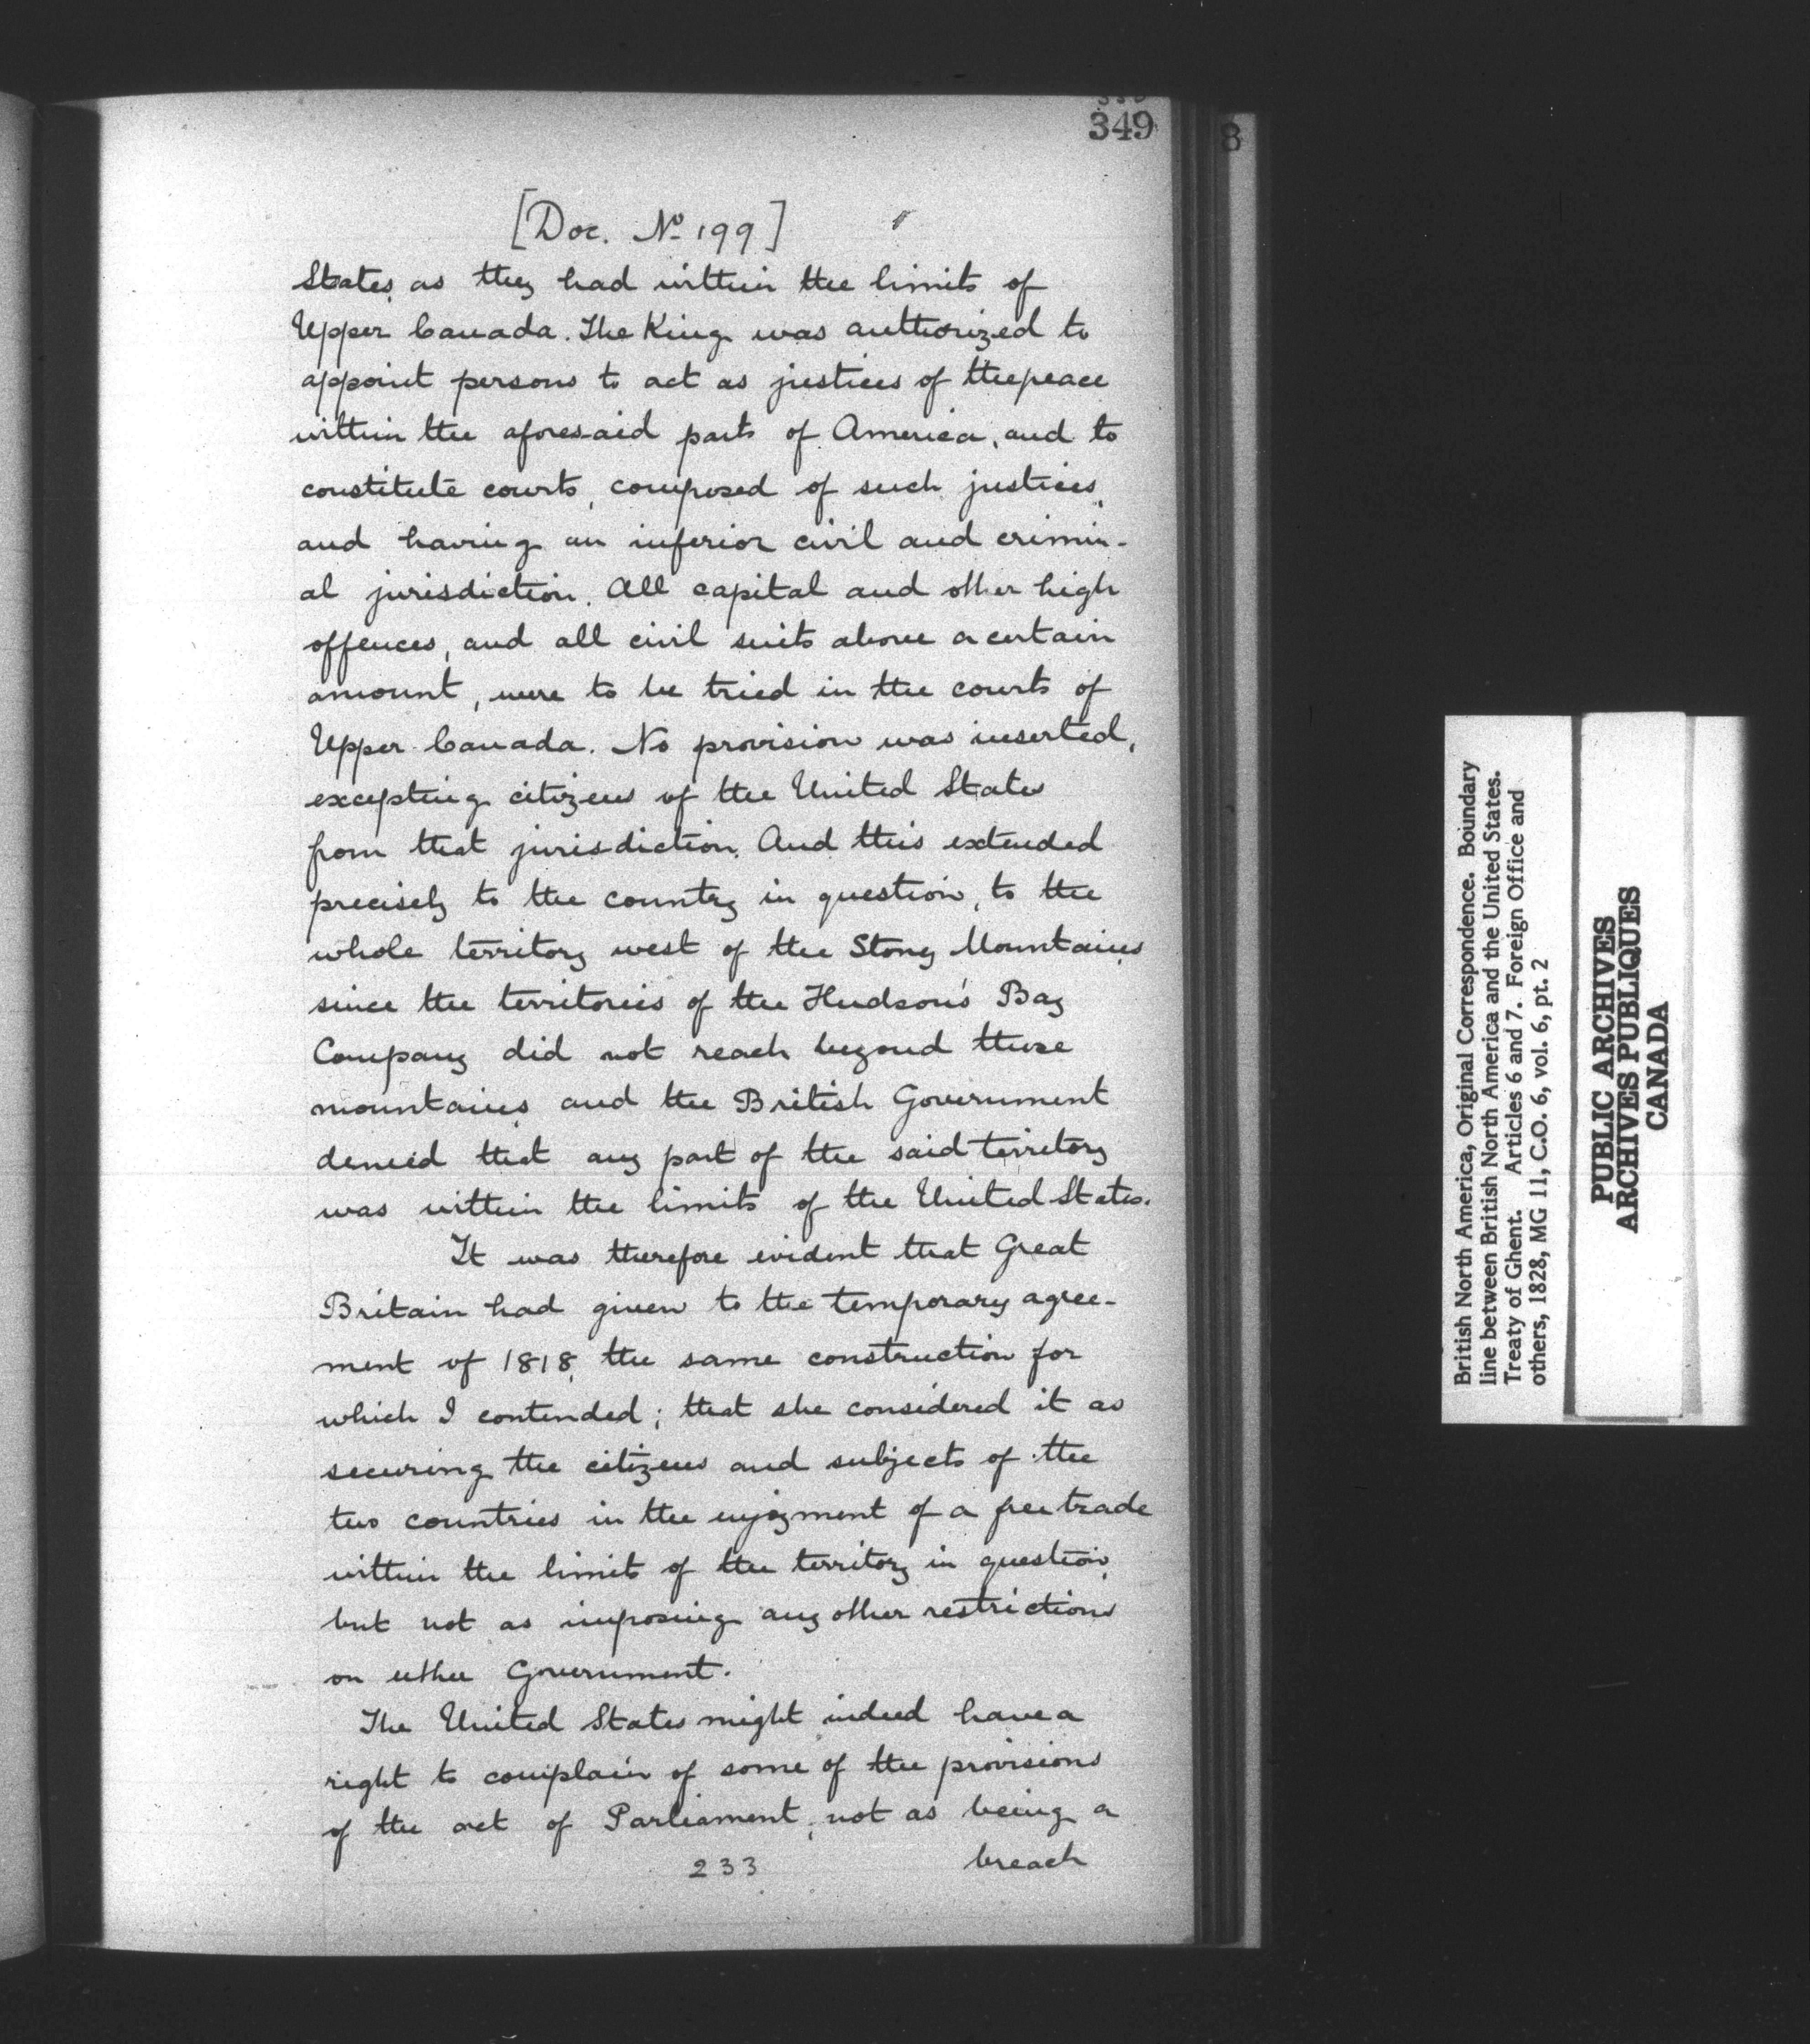 349
8
[Doc. No 199]
States, as they had within the limits of
Upper Canada. The King was authorized to
appoint persons to act as justices of the peace
within the aforesaid parts of America, and to
constitute courts, composed of such justices,
and having an inferior civil and crimin-
al jurisdiction. All capital and other high
offences, and all civil suits above a certain
amount, were to be tried in the courts of
Upper Canada. No provision was inserted,
excepting citizens of the United States
from that jurisdiction. And this extended
precisely to the country in question, to the
whole territory west of the Stony Mountains,
since the territories of the Hudson's Bay
Company did not reach beyond those
mountains, and the British Government
denied that any part of the said territory
was within the limits of the United States.
It was therefore evident that Great
Britain had given to the temporary agree-
ment of 1818, the same construction for
which I contended; that she considered it as
securing the citizens and subjects of the
two countries in the enjoyment of a free trade
within the limits of the territory in question,
but not as imposing any other restrictions
on either Government.
The United States might indeed have a
right to complain of some of the provisions
of the act of Parliament, not as being a
233 breach
British North America, Original Correspondence. Boundary
line between British North America and the United States.
Treaty of Ghent. Articles 6 and 7. Foreign Office and
others, 1828, MG 11, C.O. 6, vol. 6, pt. 2
PUBLIC ARCHIVES
ARCHIVES PUBLIQUES
CANADA